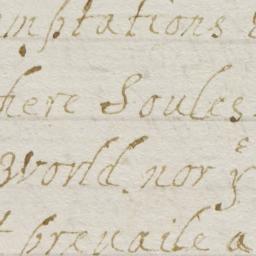 mptations
here Soules
world nor yͤ
t preuaile a